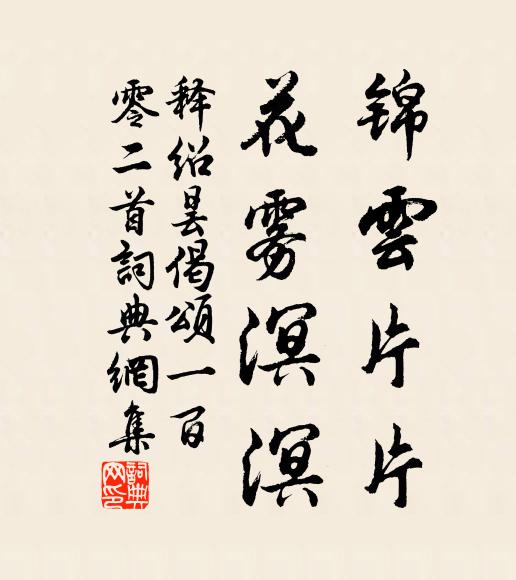 锦雲片片
花雾溟溟
释绍昙偈頌一百
零二首詞典網集
詞典网印